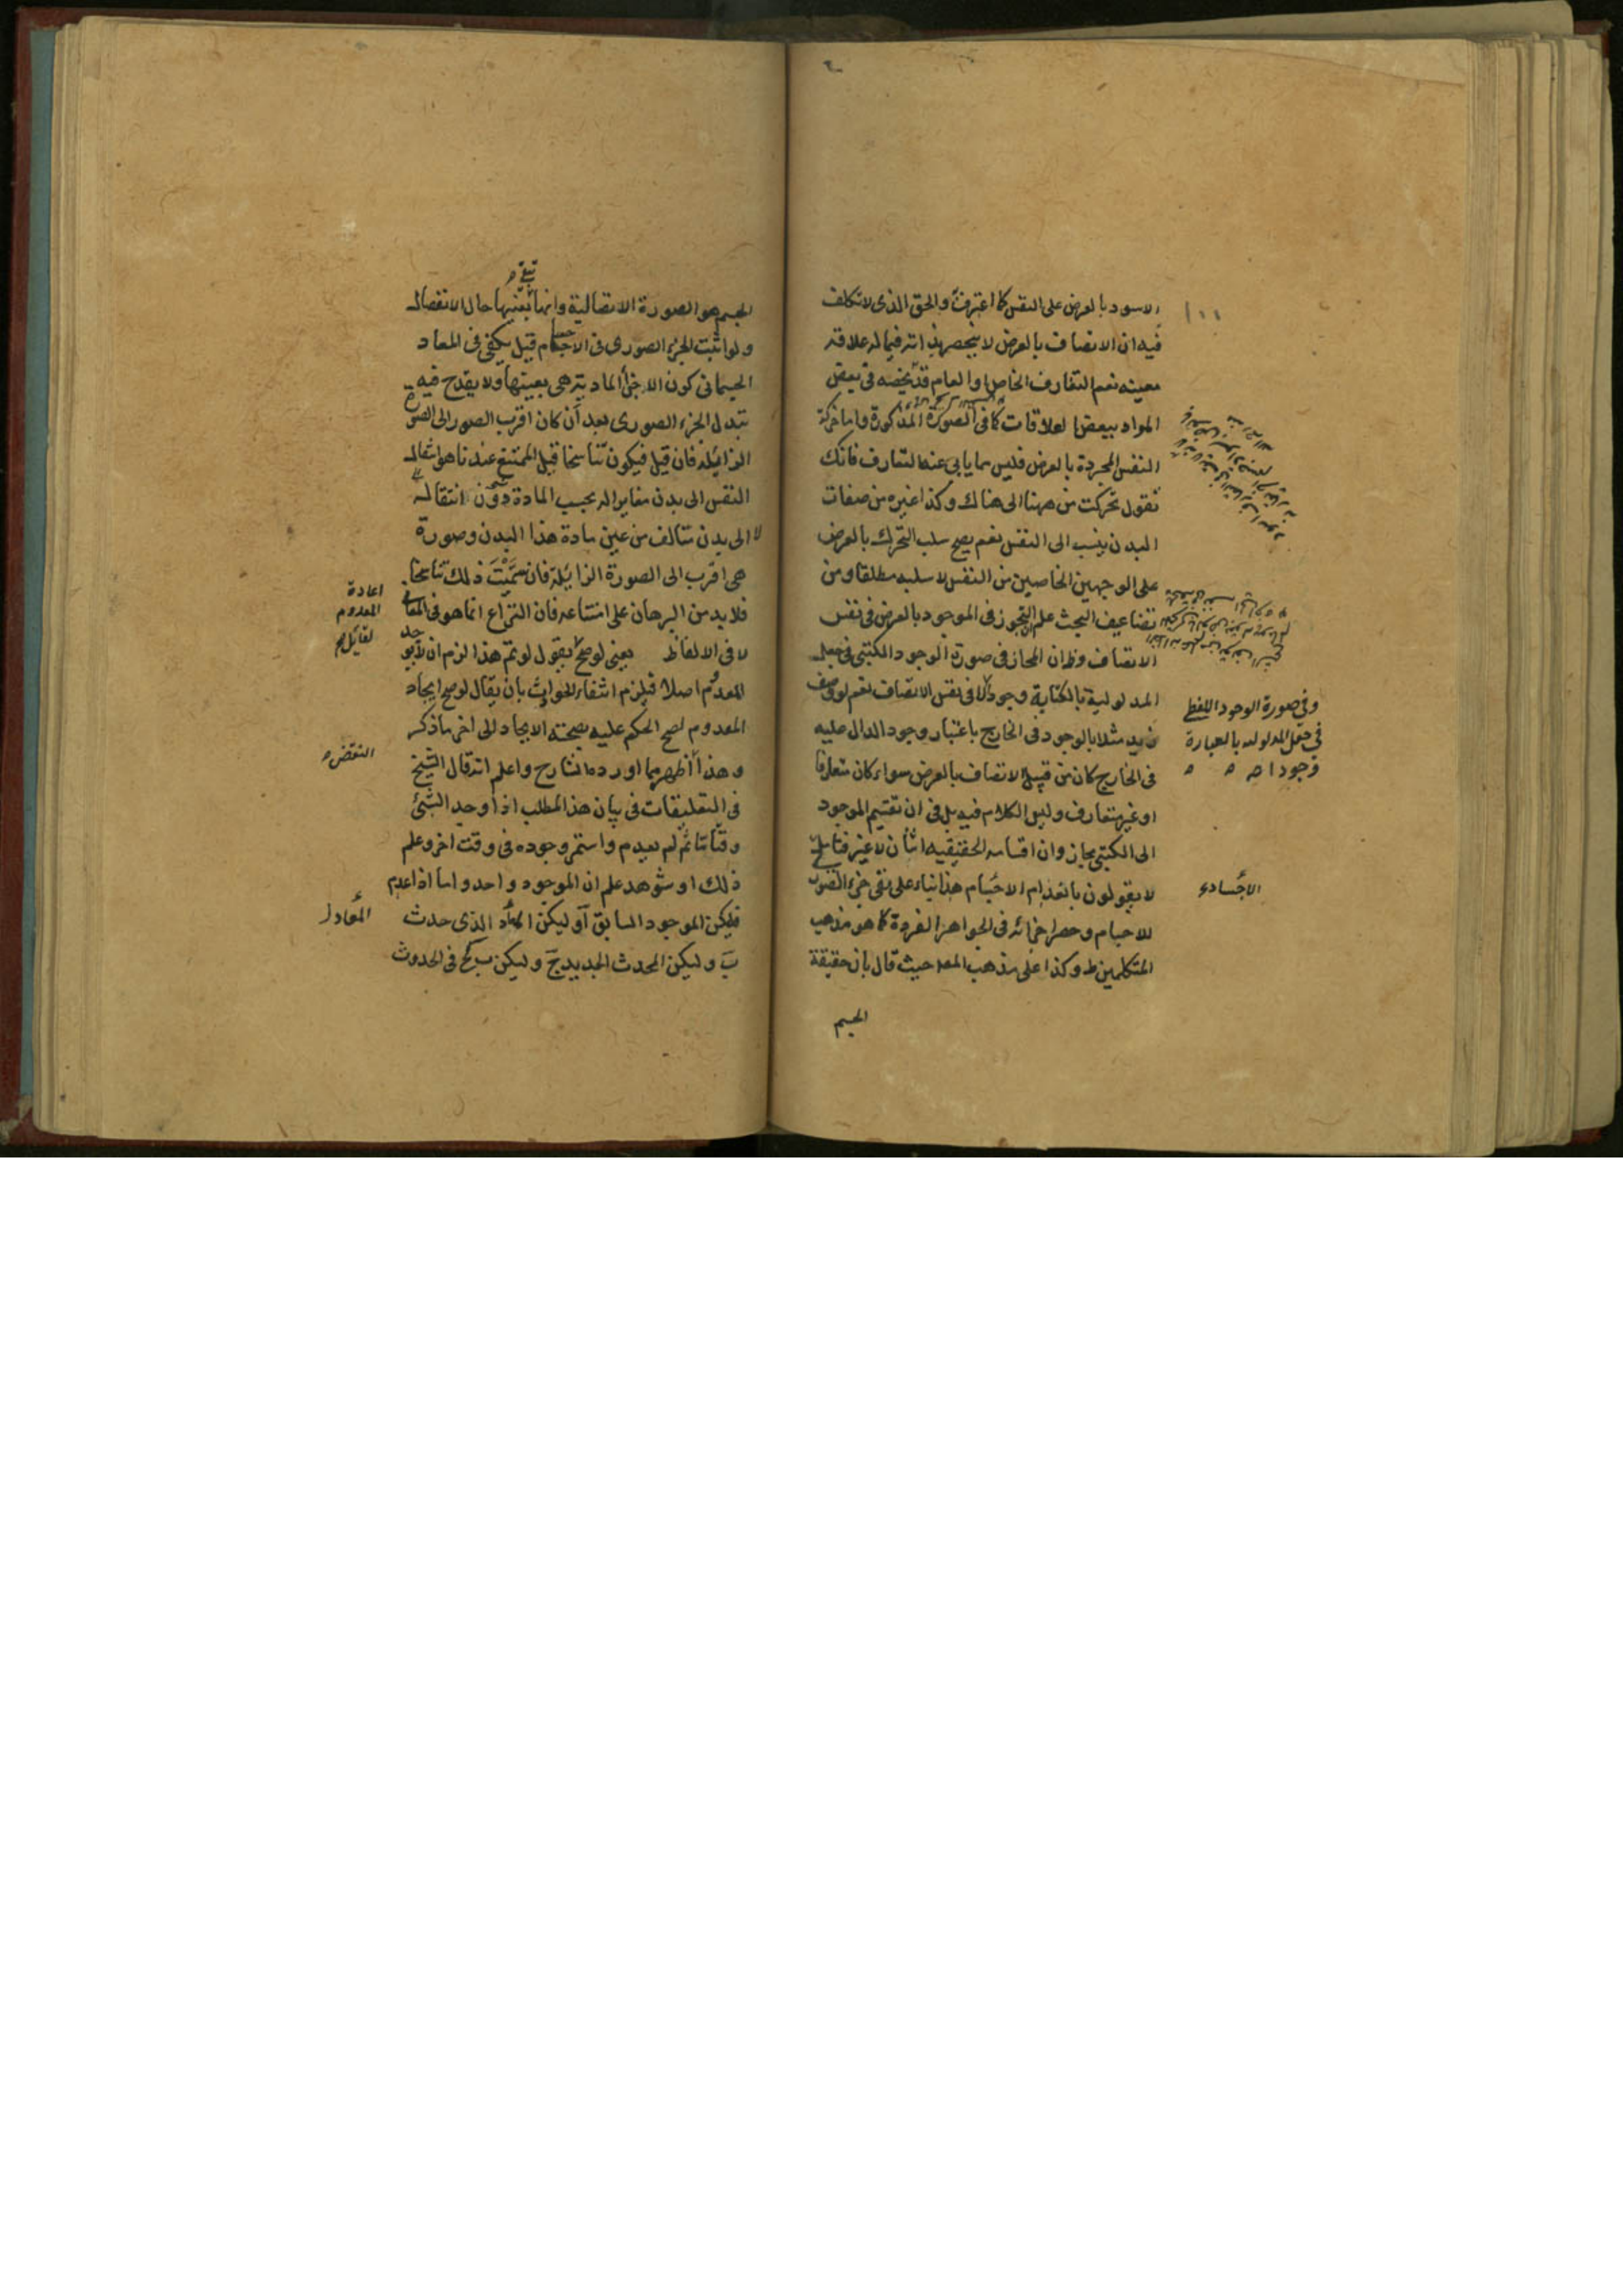 الاسود بالعرض على النفس كما اعترفت والحق الذى لا تكلف
فيه ان الاتصاف بالعرض لا ينحصر فيما له علاقة
معينه نعم التعارف الخاص او العام قد يخصه فى بعض
المواد ببعض العلاقات كما فى الصورة المذكورة واما حركة
النفس المجردة بالعرض فليس مما يابى عنه التعارف فانك
تقول تحركت من ههنا الى هناك وكذا غيره من صفات
البدن ينسب الى النفس نعم يصح سلب التحرك بالعرض
على الوجهين الخاصين من النفس لا سلبه مطلقا ومن
تضاعيف البحث علم ان التجوز فى الموجود بالعرض فى نفس
الاتصاف وظ ان المجاز فى صورة الوجود الكتبى فى جعل
المدلولية بالكتابة وجودا لا فى نفس الاتصاف نعم لو وصف
زيد مثلا بالوجود فى الخارج باعتبار وجود الدال عليه
فى الخارج كان من قبيل الاتصاف بالعرض سواء كان متعارفا
او غير متعارف وليس الكلام فيه بل فى ان تقسيم الموجود
الى الكتبى مجاز وان اقسامه الحقيقيه اثنان لا غير فتامل
لا يقولون بانعدام الاجسام هذا بناء على نفى جزء الصورى
للاجسام وحصر اجزائه فى الجواهر الفردة كما هو مذهب
المتكلمين ط وكذا على مذهب المص حيث قال بان حقيقة
الجسم
وفى صورة الوجود اللفظى
فى جعل المدلوليه بالعبارة
وجودا صح
الاجساد
الجسم هو الصورة الاتصالية وانها بعينها حال الانفصال
تبقى
ولو اثبت الجزء الصورى فى الاجسام قيل يكفى فى المعاد
الجسمانى كون الاجزاء المادية هى بعينها ولا يقدح فيه
تبدل الجزء الصورى بعد ان كان اقرب الصور الى الصورة
الزايلة فان قيل فيكون تناسخا قيل الممتنع عندنا هو انتقال
النفس الى بدن مغاير له بحسب المادة دون انتقاله
الى بدن متالف من عين مادة هذا البدن وصورة
هى اقرب الى الصورة الزايلة فان سميت ذلك تناسخا
فلا بد من البرهان على امتناعه فان النزاع انما هو فى المعانى
لا فى الالفاظ يعنى لو صح يقول لو تم هذا لزم ان لا يوجد
المعدوم اصلا فيلزم انتفاء الحوادث بان يقال لو صح ايجاد
المعدوم لصح الحكم عليه بصحته الايجاد الى اخر ما ذكر
وهذا اظهر مما اورده الشارح واعلم انه قال الشيخ
فى التعليقات فى بيان هذا المطلب اذا وجد الشئ
وقتا ما ثم لم يعدم واستمر وجوده فى وقت اخر وعلم
ذلك او شوهد علم ان الموجود واحد واما اذا عدم
فليكن الموجود السابق آ وليكن المعاد الذى حدث
ب وليكن المحدث الجديد ج وليكن ب كج فى الحدوث
اعادة
المعدوم
لقايل
النقض
المعاد